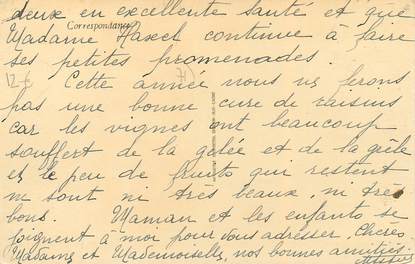 deux en excellente santé et que
Correspondance
Madame Haxel continue à faire
ses petites promenades.
Cette année nous ne ferons
pas une bonne cure de raisins
car les vignes ont beaucoup
souffert de la gelée et de la grêle
et le peu de fruits qui restent
ne sont ni très beaux, ni très
bons. Maman et les enfants se
joignent à moi pour vous adresser, Chères
Madame et Mademoiselle, nos bonnes amitiés.